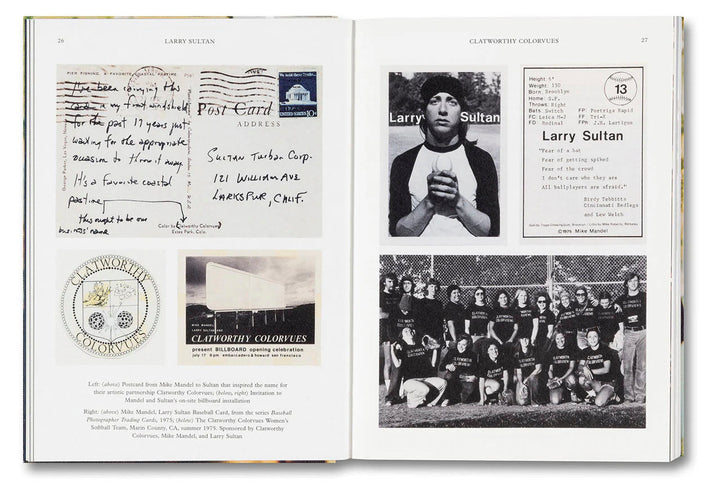 26
LARRY SULTAN
PIER FISHING, A FAVORITE COASTAL PASTIME
I've been carrying this
card in my front windshield
for the past 17 years just
waiting for the appropriate
occasion to throw it away
It's a favorite coastal
pastime
this ought to be our
business' name
Color by (Clatworthy Colorvues)
Estes Park, Colo.
Post Card
ADDRESS
10¢
Sultan Turban Corp.
121 William Ave
Larkspur, Calif.
CLATWORTHY
COLORVUES
MIKE MANDEL
LARRY SULTAN
CLATWORTHY COLORVUES
present BILLBOARD opening celebration
july 17 8 pm embarcadero & howard san francisco
Left: (above) Postcard from Mike Mandel to Sultan that inspired the name for
their artistic partnership Clatworthy Colorvues; (below, right) Invitation to
Mandel and Sultan's on-site billboard installation
Right: (above) Mike Mandel, Larry Sultan Baseball Card, from the series Baseball
Photographer Trading Cards, 1975; (below) The Clatworthy Colorvues Women's
Softball Team, Marin County, CA, summer 1975. Sponsored by Clatworthy
Colorvues, Mike Mandel, and Larry Sultan
CLATWORTHY COLORVUES
27
Larry Sultan
Height: 6'
Weight: 150
Born: Brooklyn
Home: S.F.
Throws: Right
Bats: Switch
FC: Leica M-2
FD: Rodinal
FP: Portriga Rapid
FF: Tri-X
FPh: J.H. Lartigue
13
Larry Sultan
"Fear of a bat
Fear of getting spiked
Fear of the crowd
I don't care who they are
All ballplayers are afraid."
Birdy Tebbitts
Cincinnati Redlegs
and Lew Welch
©1975 Mike Mandel